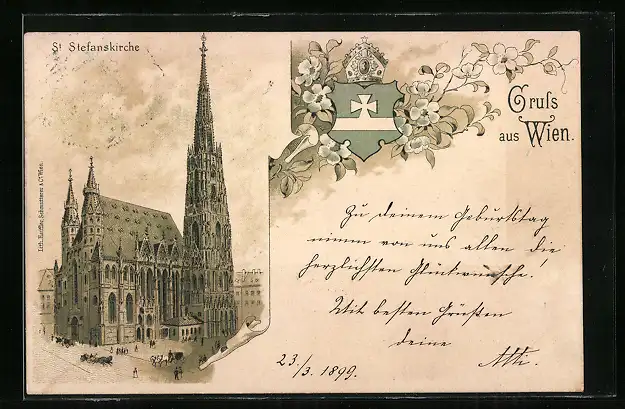 St Stefanskirche
Gruss
aus Wien.
Zu deinem Geburtstag
nimm von uns allen die
herzlichsten Glückwünsche!
Mit besten Grüßen
deine
23/3. 1899.